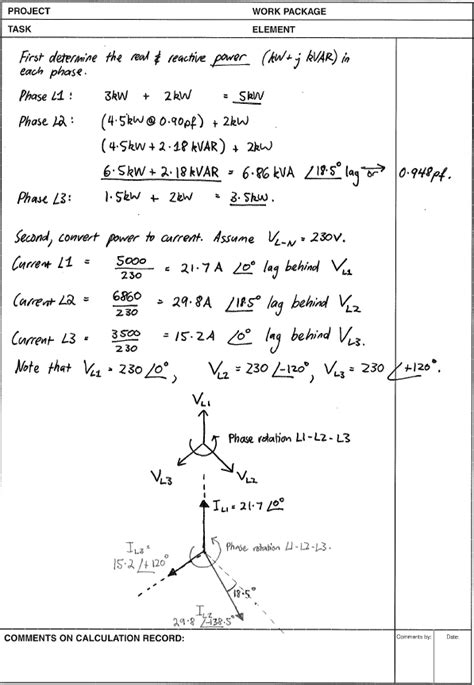 PROJECT WORK PACKAGE
TASK ELEMENT
First determine the real & reactive power (kW + j kVAR) in
each phase.
Phase L1 : 3kW + 2kW = 5kW
Phase L2 : (4.5kW @ 0.90pf) + 2kW
(4.5kW + 2.18kVAR) + 2kW
6.5kW + 2.18kVAR = 6.86 kVA ∠18.5° lag or → 0.948pf.
Phase L3 : 1.5kW + 2kW = 3.5kW.
Second, convert power to current. Assume V_L-N = 230V.
Current L1 = 5000/230 = 21.7A ∠0° lag behind V_L1
Current L2 = 6860/230 = 29.8A ∠18.5° lag behind V_L2
Current L3 = 3500/230 = 15.2A ∠0° lag behind V_L3.
Note that V_L1 = 230 ∠0°, V_L2 = 230 ∠-120°, V_L3 = 230 ∠+120°.
V_L1
Phase rotation L1-L2-L3
V_L3 V_L2
I_L1 = 21.7 ∠0°
I_L3 = Phase rotation L1-L2-L3.
15.2 ∠+120°
18.5°
I_L2
29.8 ∠-138.5°
COMMENTS ON CALCULATION RECORD: Comments by: Date: